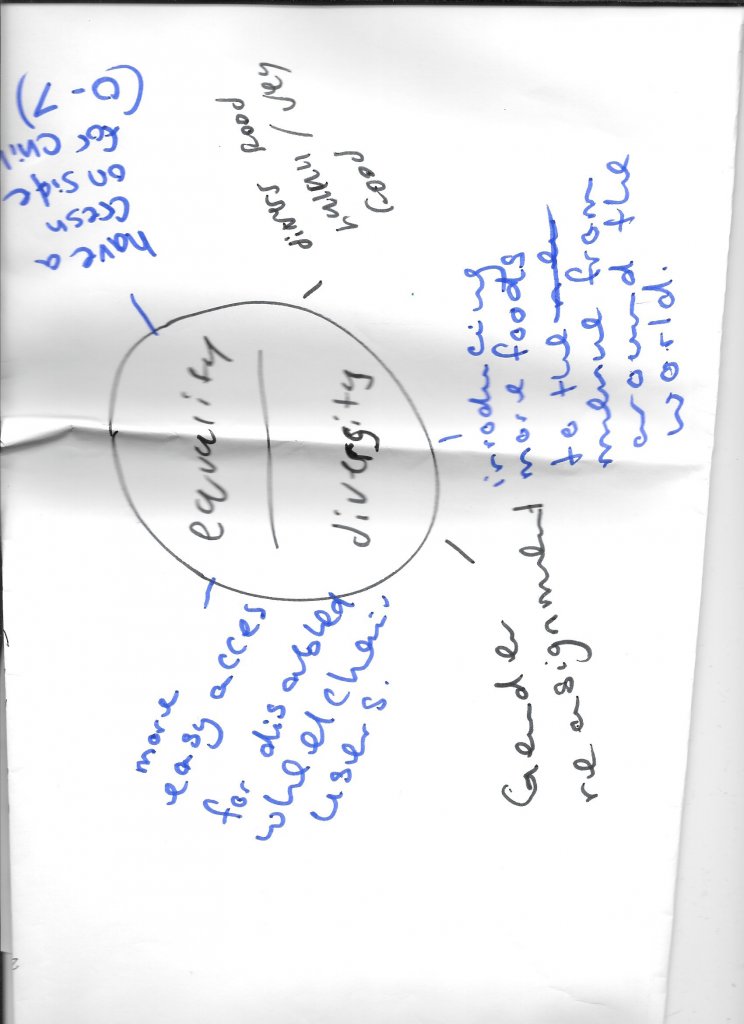 equality
diversity
have a
on side
for chil
(0-7)
food
food
inroducing
more foods
to the
menue from
around the
world.
Gender
reasignment
more
easy acces
for disabled
wheelchair
users.